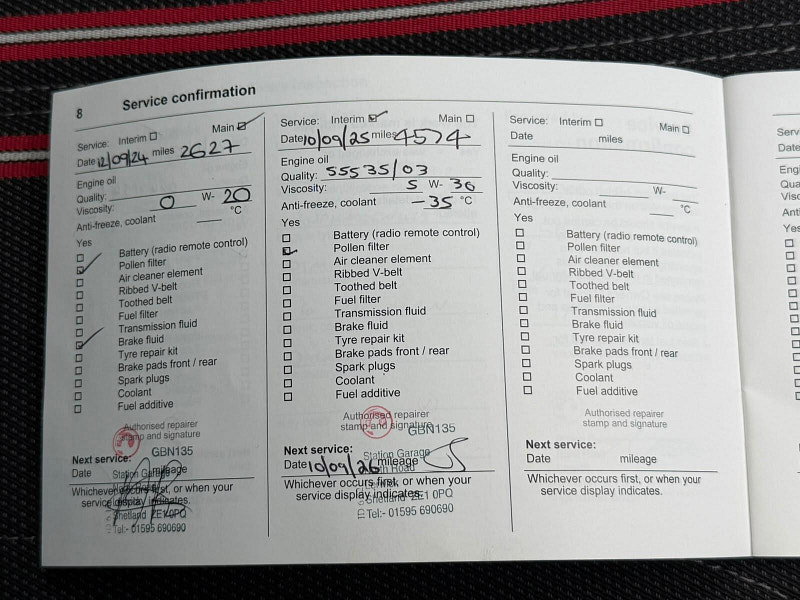 8 Service confirmation
Service: Interim Main
Date 12/09/24 miles 2627
Engine oil
Quality:
Viscosity: 0 W- 20
Anti-freeze, coolant °C
Yes
Battery (radio remote control)
Pollen filter
Air cleaner element
Ribbed V-belt
Toothed belt
Fuel filter
Transmission fluid
Brake fluid
Tyre repair kit
Brake pads front / rear
Spark plugs
Coolant
Fuel additive
Authorised repairer
stamp and signature
GBN135
Next service:
Date mileage
Station Garage
Whichever occurs first, or when your
service display indicates.
Shetland ZE1 0PQ
Tel:- 01595 690690
Service: Interim Main
Date 10/09/25 miles 4574
Engine oil
Quality: 55535/03
Viscosity: 5 W- 30
Anti-freeze, coolant -35 °C
Yes
Battery (radio remote control)
Pollen filter
Air cleaner element
Ribbed V-belt
Toothed belt
Fuel filter
Transmission fluid
Brake fluid
Tyre repair kit
Brake pads front / rear
Spark plugs
Coolant
Fuel additive
Authorised repairer
stamp and signature
GBN135
Next service:
Station Garage
Date 10/09/26 mileage
Road
Whichever occurs first, or when your
service display indicates.
Shetland ZE1 0PQ
Tel:- 01595 690690
Service: Interim Main
Date miles
Engine oil
Quality:
Viscosity: W-
Anti-freeze, coolant °C
Yes
Battery (radio remote control)
Pollen filter
Air cleaner element
Ribbed V-belt
Toothed belt
Fuel filter
Transmission fluid
Brake fluid
Tyre repair kit
Brake pads front / rear
Spark plugs
Coolant
Fuel additive
Authorised repairer
stamp and signature
Next service:
Date mileage
Whichever occurs first, or when your
service display indicates.
Date
Yes